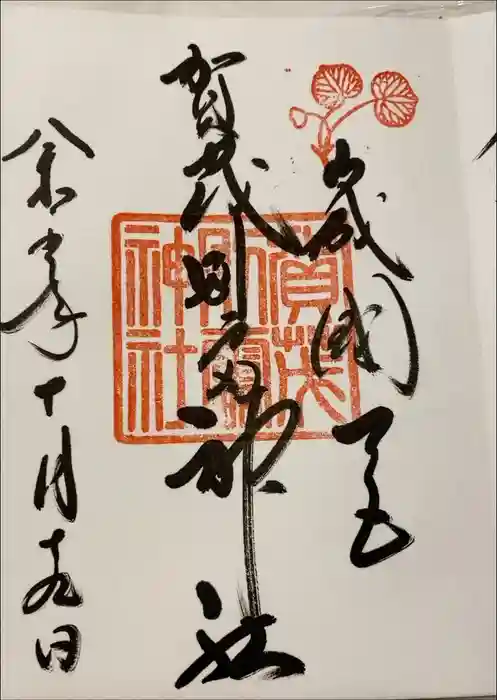 山城國一宮
賀茂別雷神社
令和 年十月十九日
賀茂別雷神社